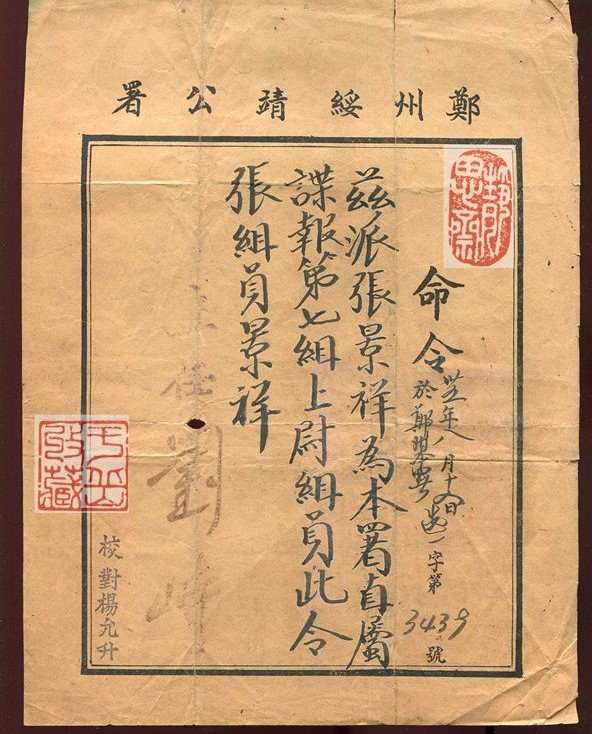 鄭州綏靖公署
命令
年八月十六日
於鄭
字第3439號
茲派張景祥為本署直屬
諜報第七組上尉組員此令
張組員景祥
主任劉峙
校對楊允升